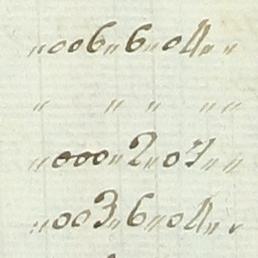 „006„6„04„„
„ „ „ „ „
„000„2„07„„
„003„6„04„„